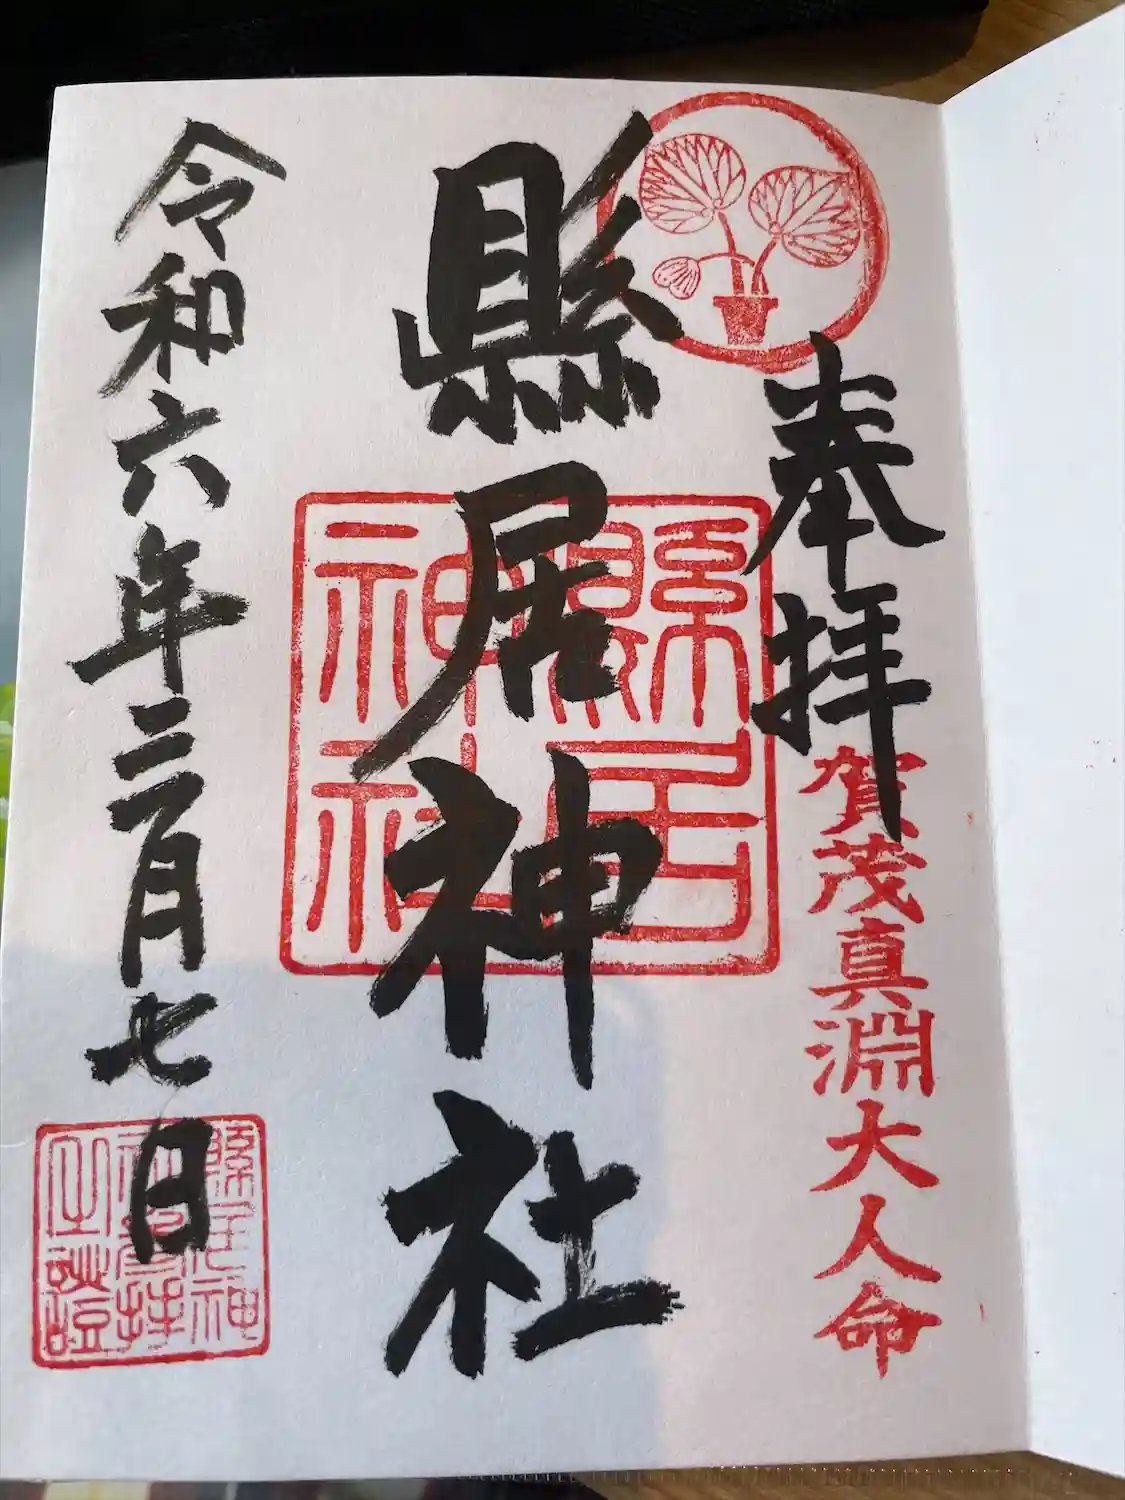 奉拝
賀茂真淵大人命
縣居神社
縣居
神社
令和六年三月七日
縣居神
社参拝
之證